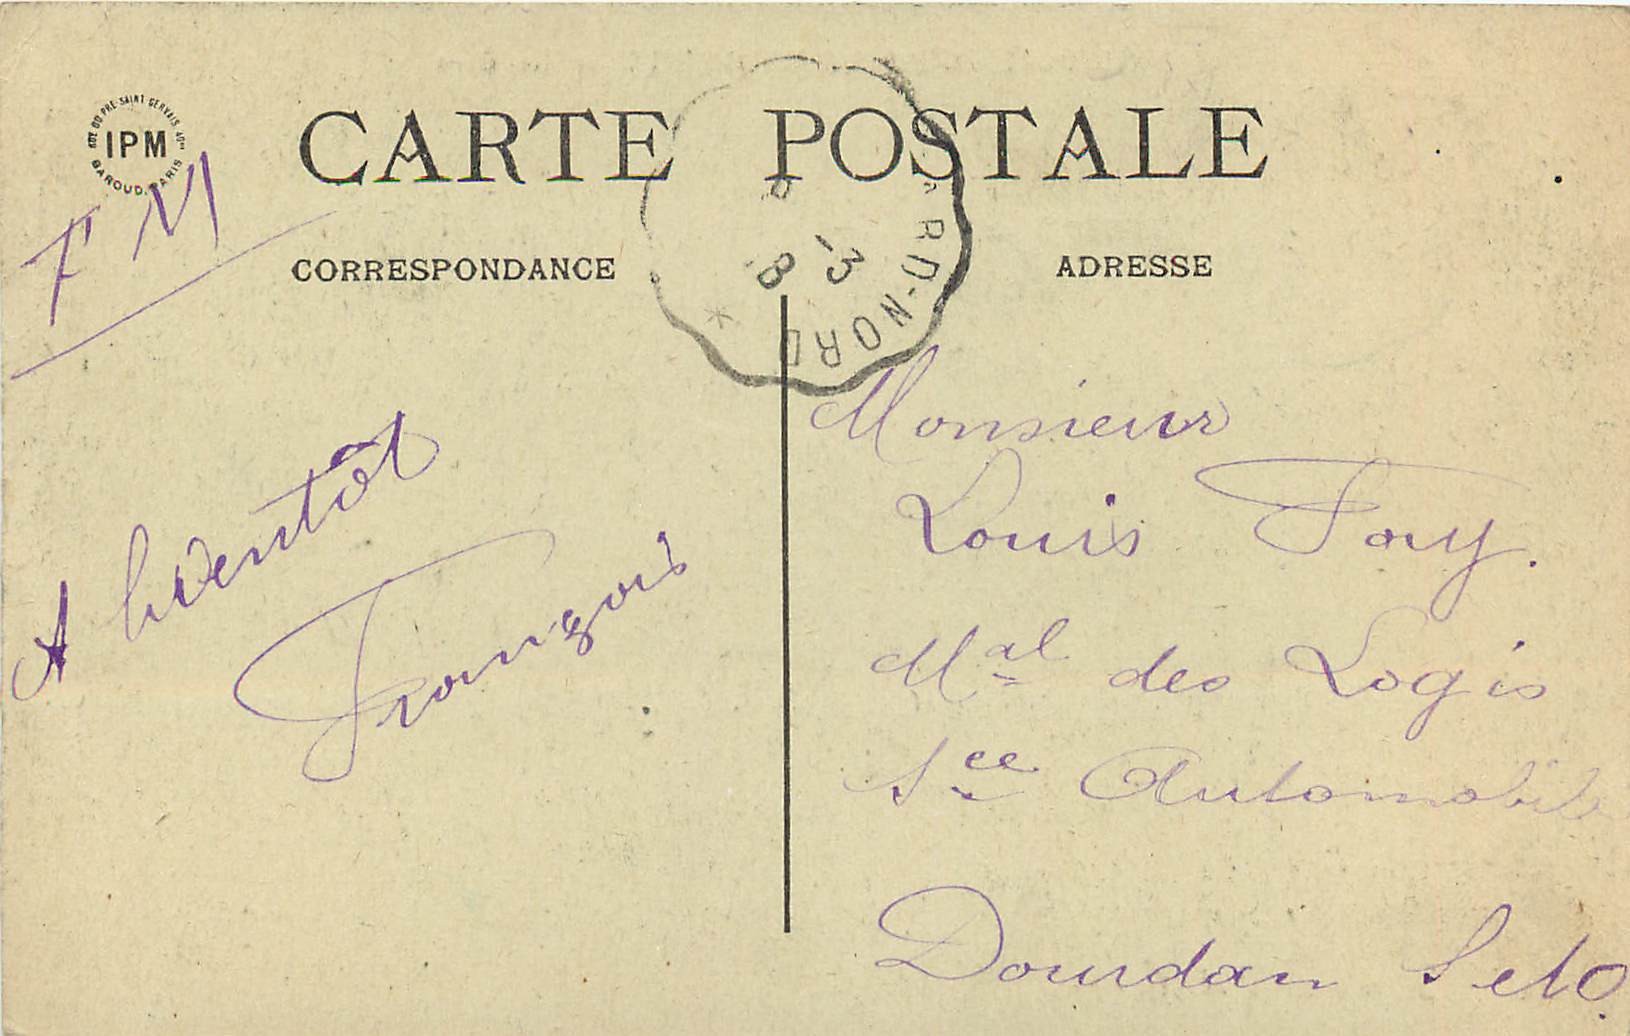 RUE DU PRE SAINT GERVAIS
IPM
BAROUD. PARIS
CARTE POSTALE
F M
CORRESPONDANCE
ADRESSE
-3
B
RD-NORD
A bientôt
François
Monsieur
Louis Fay.
Mal des Logis
Sce Automobile
Dourdan S et O